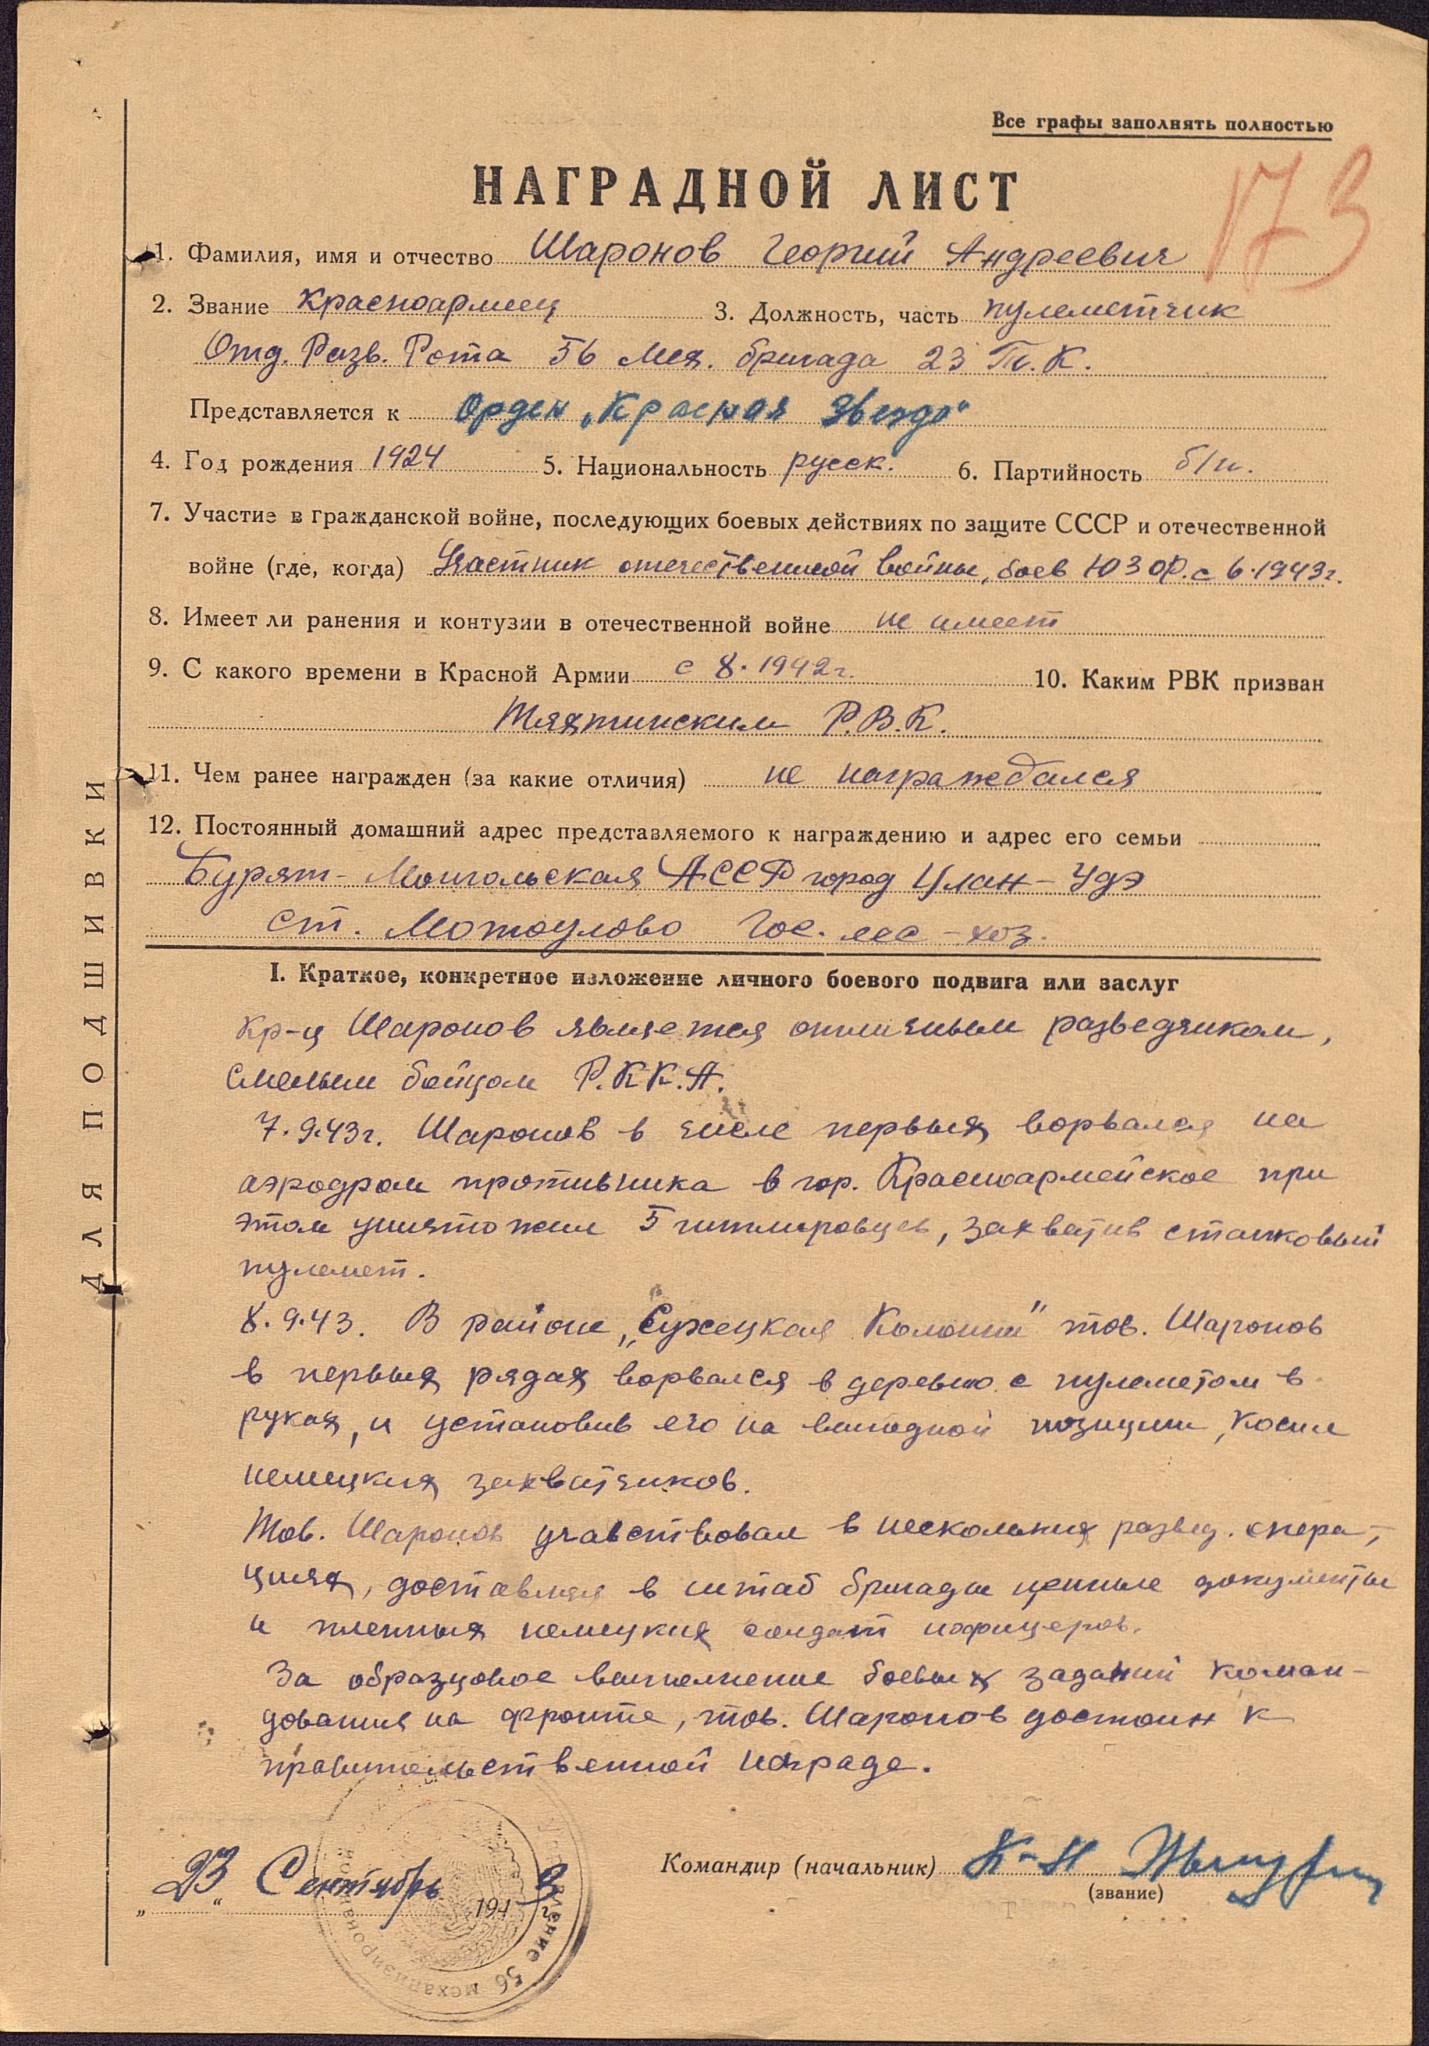 Все графы заполнять полностью
173
НАГРАДНОЙ ЛИСТ
1. Фамилия, имя и отчество Шаронов Георгий Андреевич
2. Звание Красноармеец 3. Должность, часть пулеметчик
Отд. Разв. Рота 56 Мех. бригада 23 Т.К.
Представляется к Орден „Красная Звезда"
4. Год рождения 1924 5. Национальность русск. 6. Партийность б/п.
7. Участие в гражданской войне, последующих боевых действиях по защите СССР и отечественной
войне (где, когда) Участник отечественной войны, боев ЮЗФр. с 6.1943г.
8. Имеет ли ранения и контузии в отечественной войне не имеет
9. С какого времени в Красной Армии с 8.1942г. 10. Каким РВК призван
Р.В.К.
11. Чем ранее награжден (за какие отличия) не награждался
12. Постоянный домашний адрес представляемого к награждению и адрес его семьи
Бурят-Монгольская АССР город Улан-Удэ
ст. Гос. лес-хоз.
I. Краткое, конкретное изложение личного боевого подвига или заслуг
Кр-ц Шаронов является отличным разведчиком,
смелым бойцом Р.К.К.А.
7.9.43г. Шаронов в числе первых ворвался на
аэродром противника в гор. Красноармейское при
этом уничтожил 5 гитлеровцев, захватив станковый
пулемет.
8.9.43. В районе Колонии" тов. Шаронов
в первых рядах ворвался в деревню с пулеметом в
руках, и установив его на выгодной позиции, косил
немецких захватчиков.
Тов. Шаронов учавствовал в нескольких развед. опера-
циях, доставляя в штаб бригады ценные документы
и пленных немецких солдат и офицеров.
За образцовое выполнение боевых заданий коман-
дования на фронте, тов. Шаронов достоин к
правительственной награде.
Командир (начальник) К-н
(звание)
„23" Сентябрь 1943 г.
Управление 56 механизированной
ДЛЯ ПОДШИВКИ